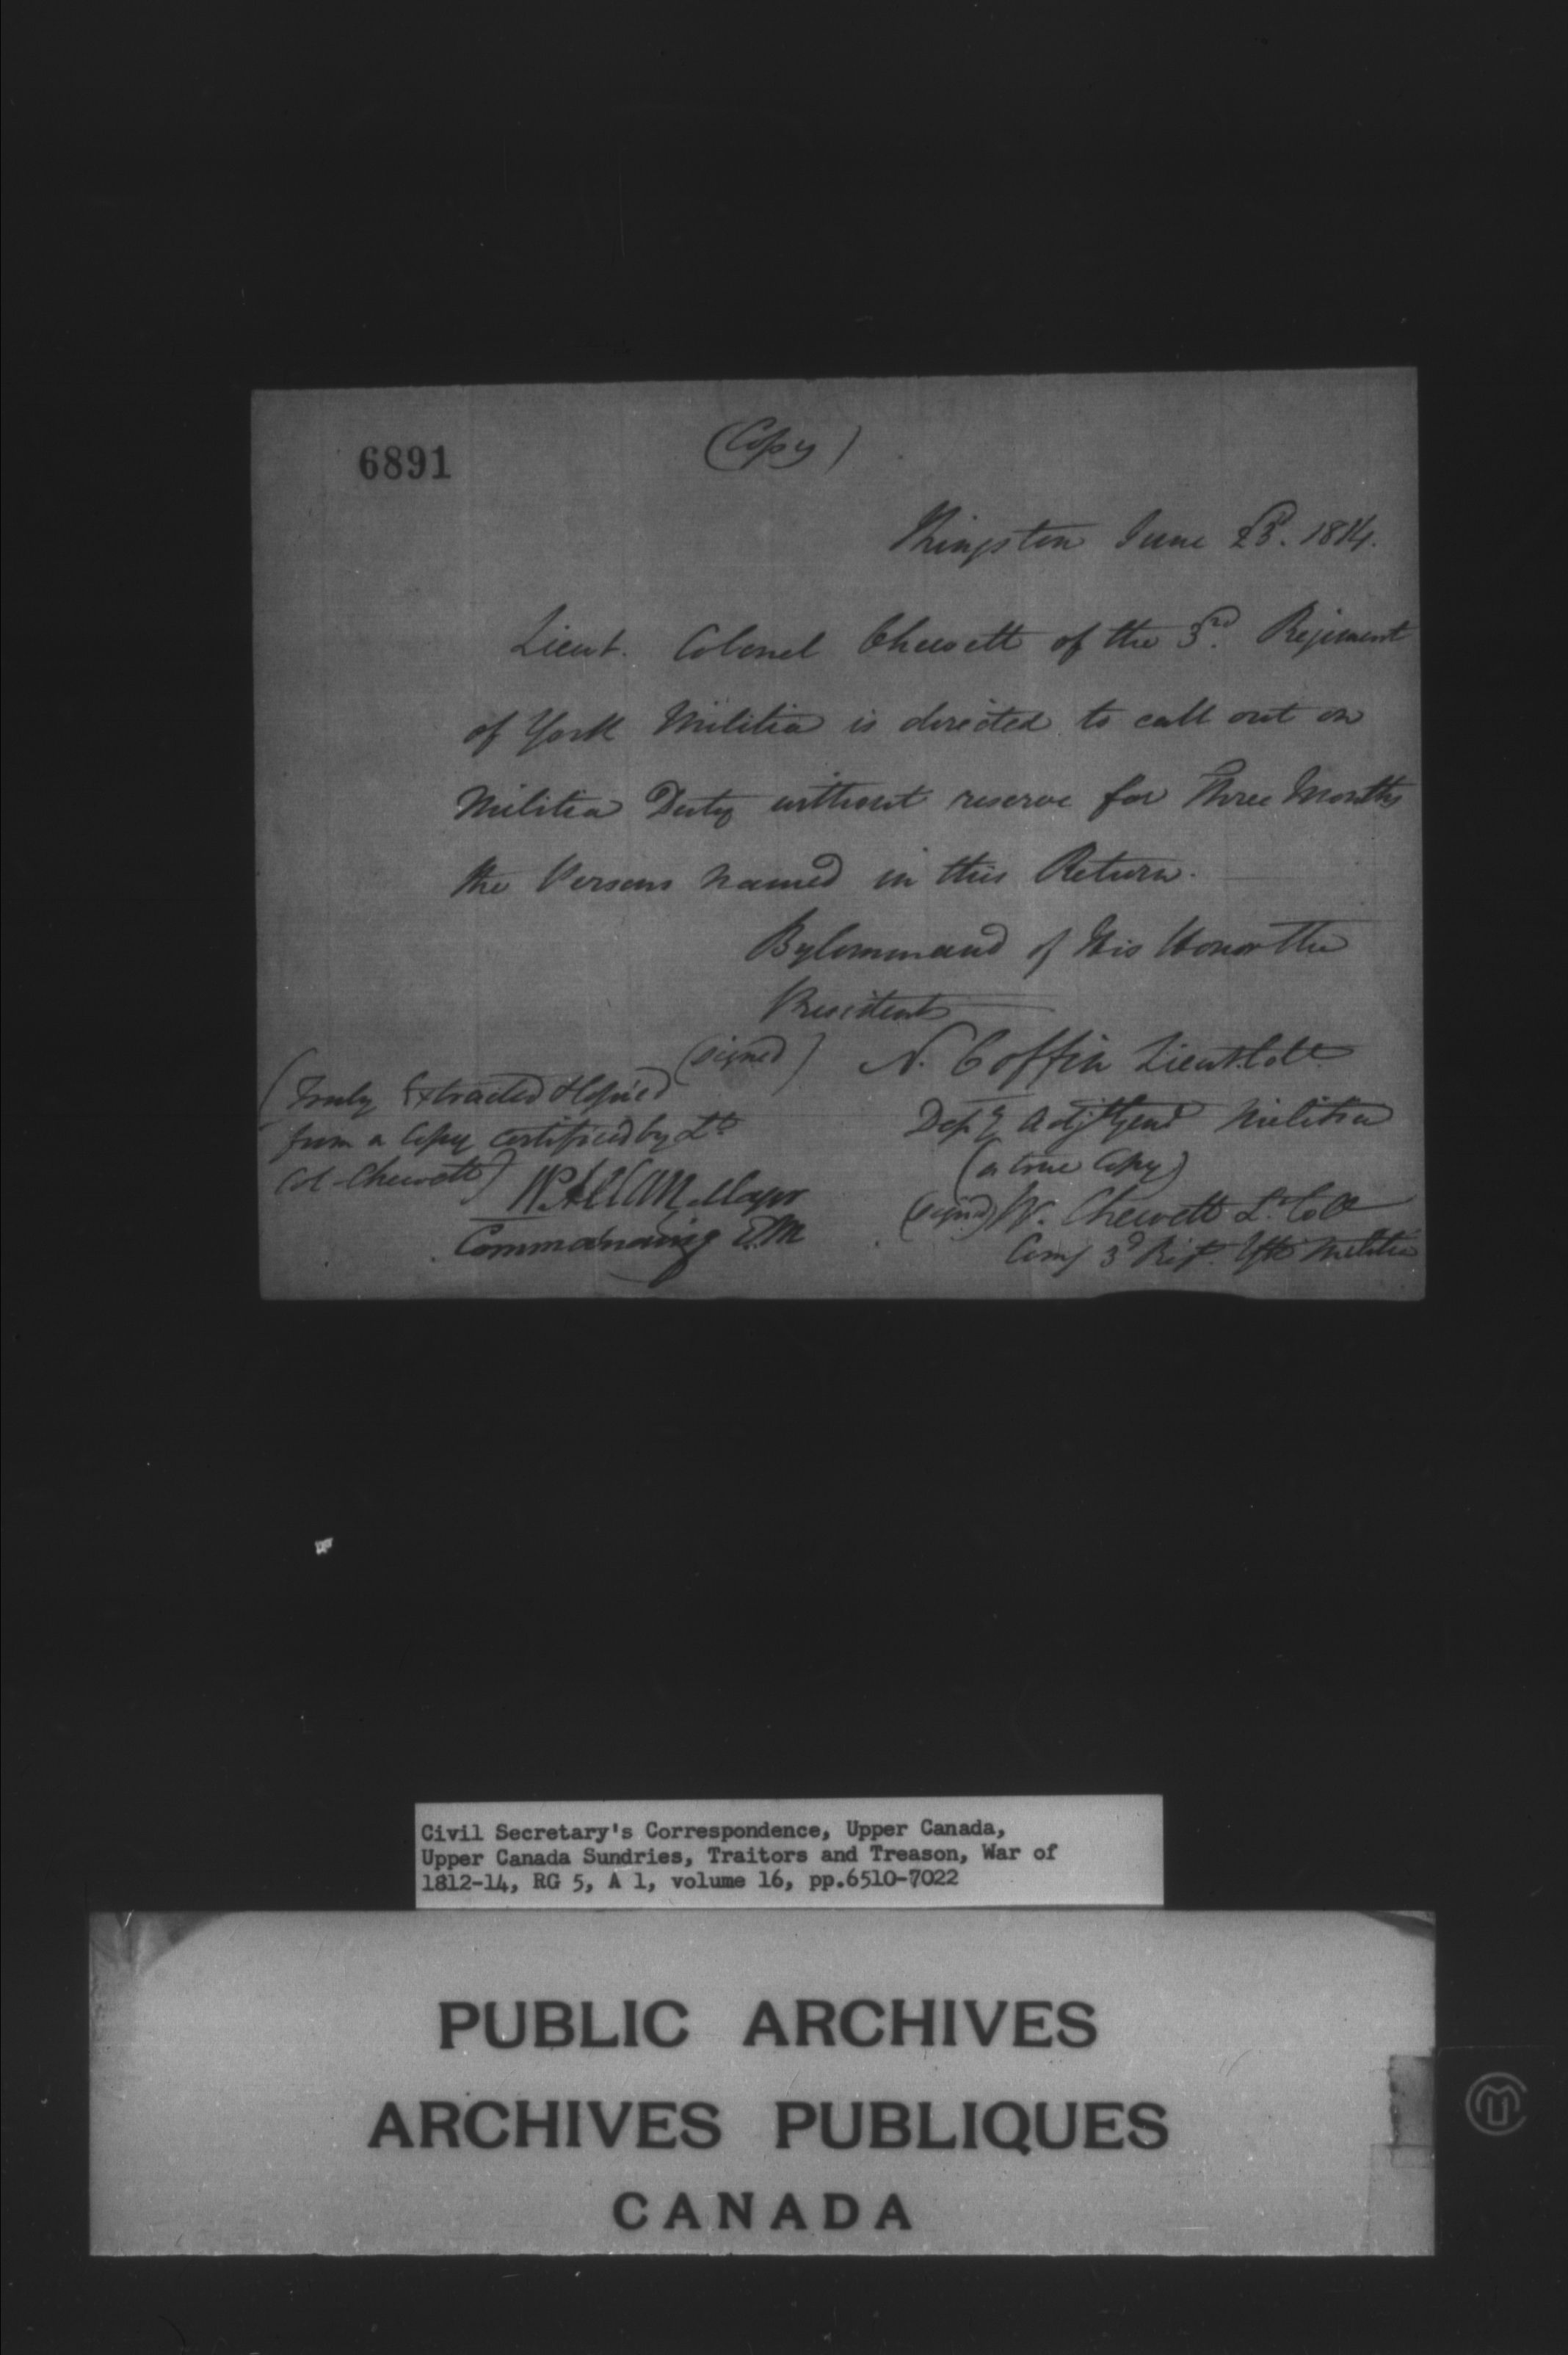 6891
(Copy)
Kingston June 23d. 1814.
Lieut. Colonel Chewett of the 3rd. Regiment
of York Militia is directed to call out on
Militia Duty without reserve for Three Months
the Persons named in this Return.
By Command of His Honor the
President
(signed) N. Coffin Lieut. Coll.
Depy. Adjt Genl Militia
(a true Copy)
(signd) W. Chewett Lt. Coll
Comg 3d Regt. York Militia
(Truly Extracted & Copied
from a Copy certified by Lt
Col Chewett)
W. Allan Major
Commanding
Civil Secretary's Correspondence, Upper Canada,
Upper Canada Sundries, Traitors and Treason, War of
1812-14, RG 5, A 1, volume 16, pp.6510-7022
PUBLIC ARCHIVES
ARCHIVES PUBLIQUES
CANADA